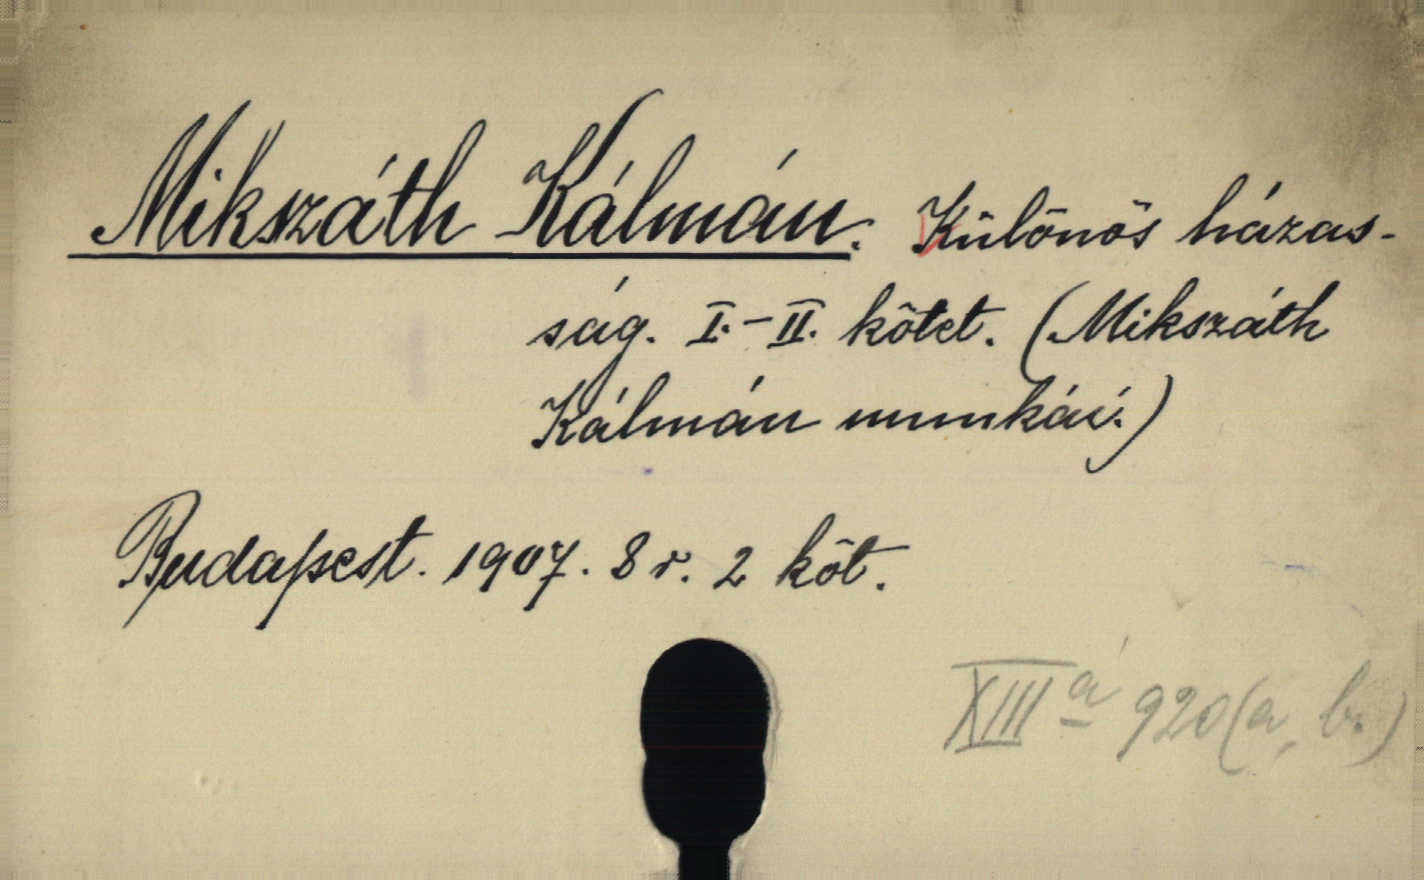 Mikszáth Kálmán. Különös házas-
ság. I.-II. kötet. (Mikszáth
Kálmán munkái.)
Budapest. 1907. 8 r. 2 köt.
XIII á 920 (a, b.)